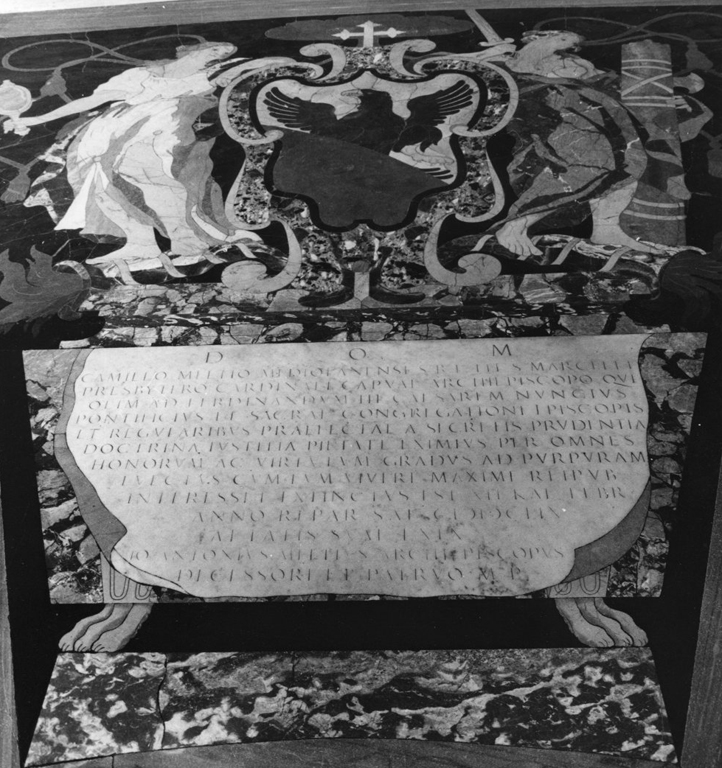 D O M
CAMILLO MELTIO MEDIOLANENSI S R E TIT S MARCELLI
PRESBYTERO CARDINALI CAPVAE ARCHIEPISCOPO QVI
OLIM AD FERDINANDVM III CAESAREM NVNCIVS
PONTIFICIVS ET SACRAE CONGREGATIONI EPISCOPIS
ET REGVLARIBVS PRAEFECTAE A SECRETIS PRVDENTIA
DOCTRINA IVSTITIA PIETATE EXIMIVS PER OMNES
HONORVM AC VIRTVTVM GRADVS AD PVRPVRAM
EVECTVS CVM EVM VIVERE MAXIME REIPVB
INTERESSET EXTINCTVS EST KAL FEBR
ANNO REPAR SAL
AETATIS S
IO ANTONIVS MELTIVS ARCHIEPISCOPVS
DECESSORI ET PATRVO M P